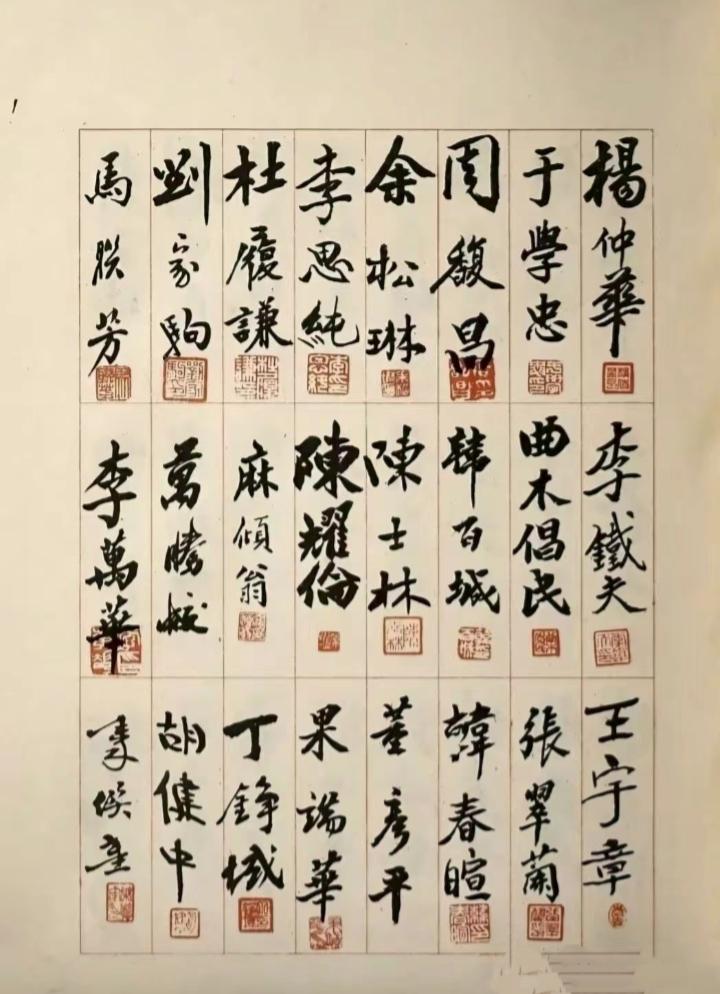 楊仲華
于學忠
周馥昌
余松琳
李思純
杜履謙
劉家駒
馬朕芳
李鐵夫
曲木倡民
韓百城
陳士林
陳耀倫
麻傾翁
萬勝
李萬華
王宇章
張翠蘭
韓春暄
董彥平
果端華
丁錚域
胡健中